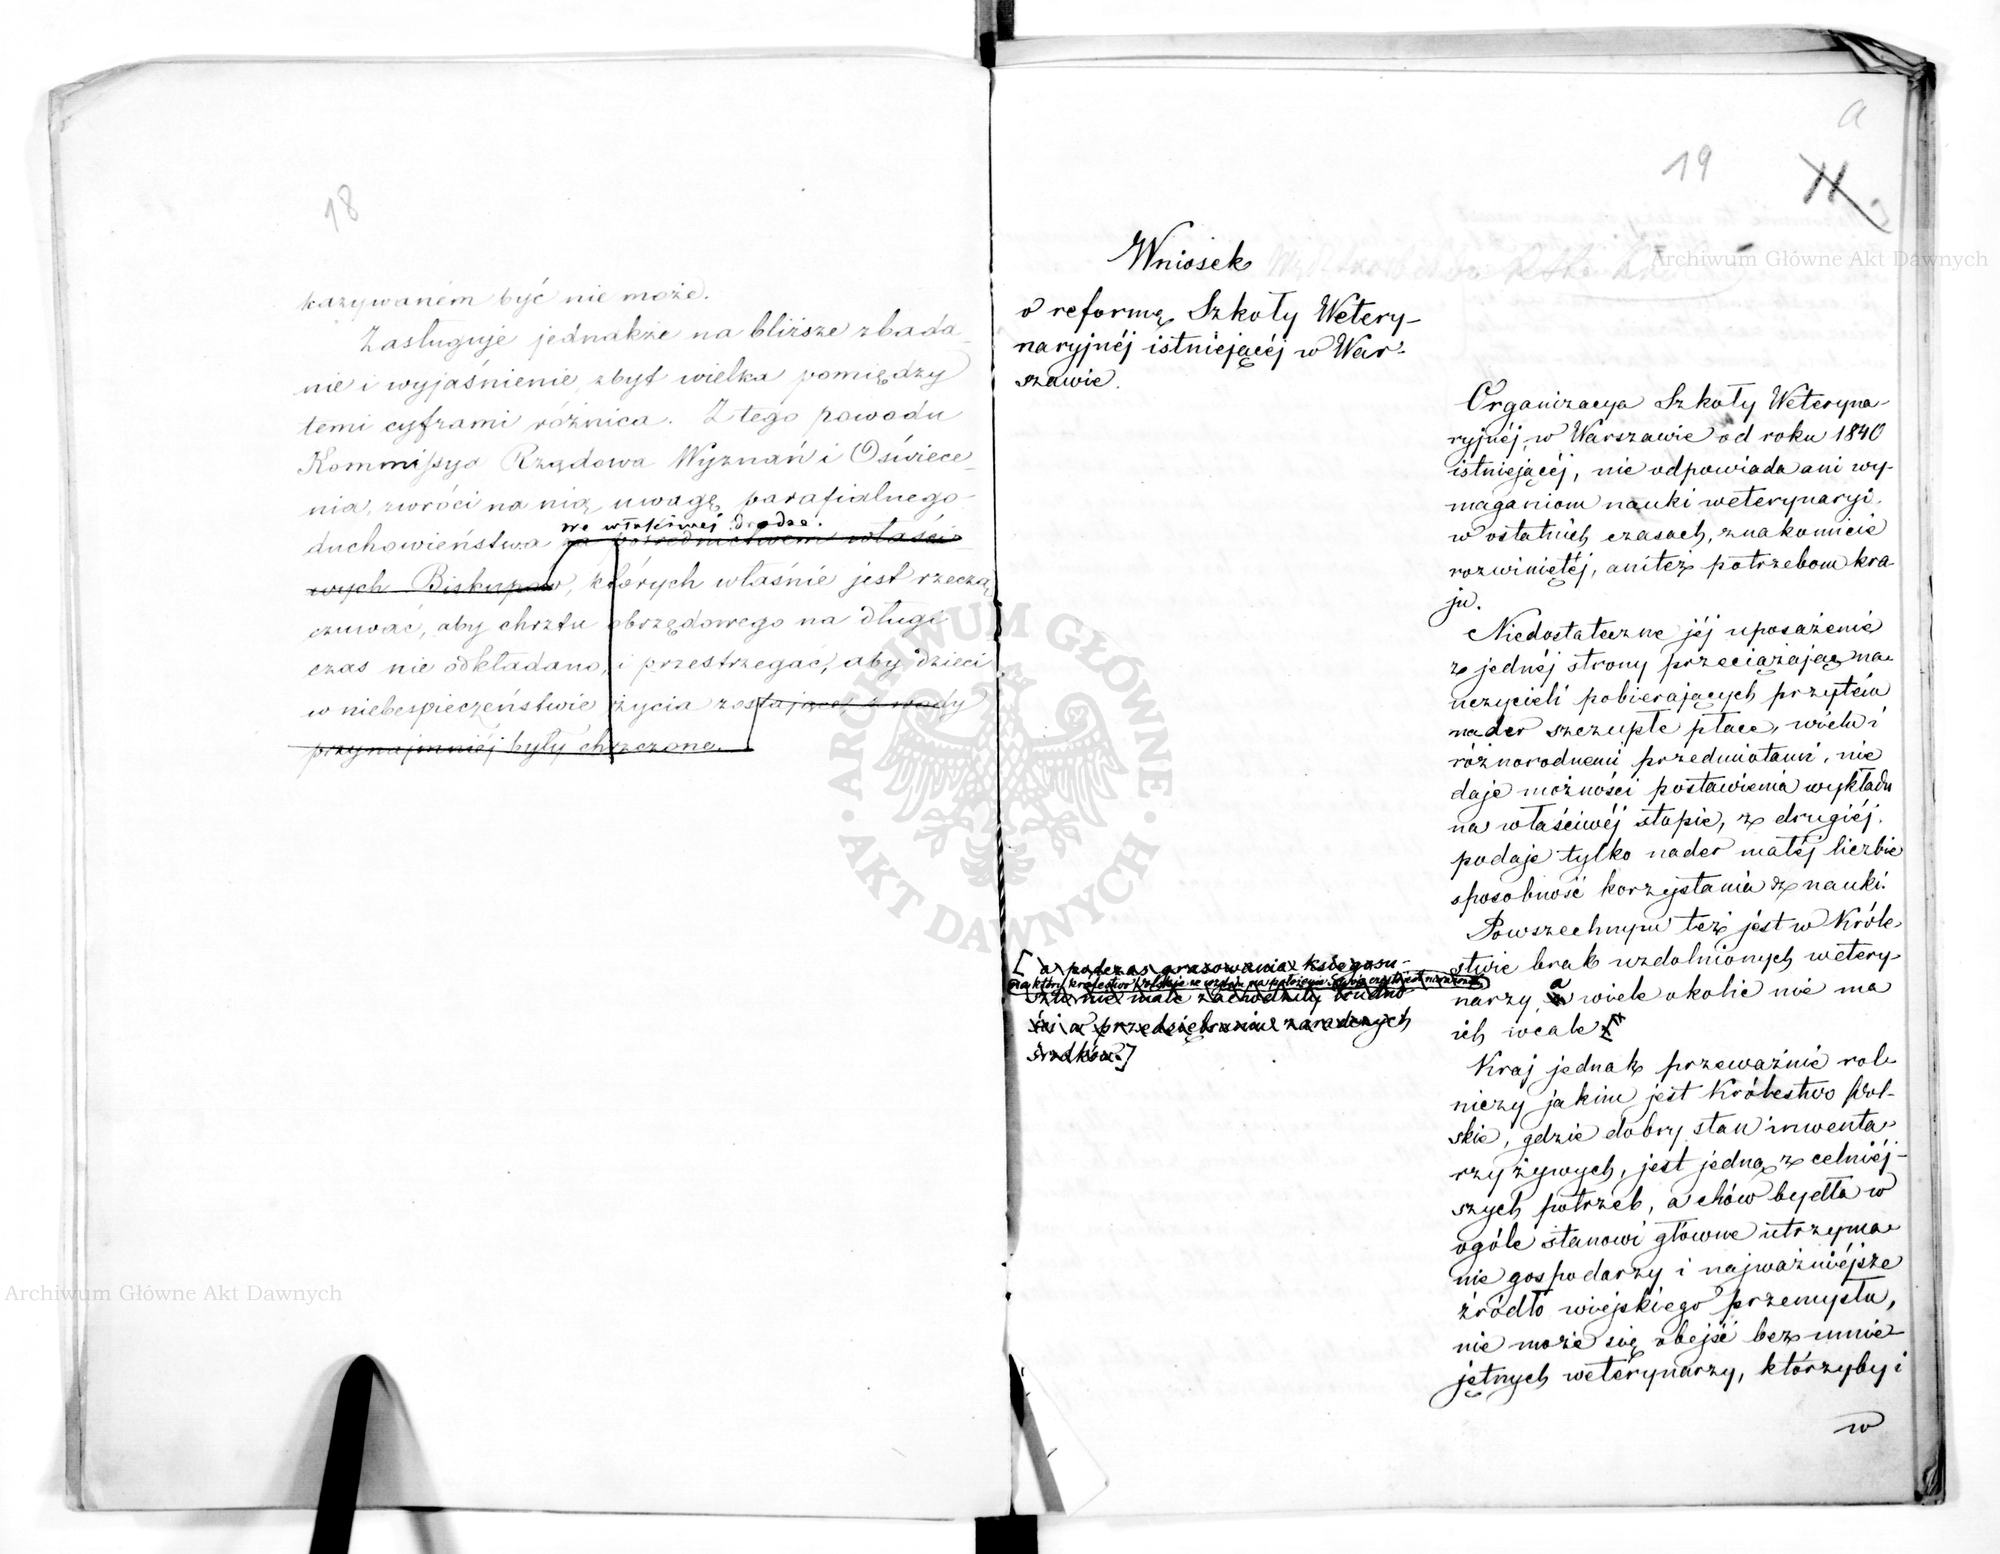 18
kazywaném być nie może.
Zasługuje jednakże na bliższe zbada-
nie i wyjaśnienie zbyt wielka pomiędzy
temi cyframi różnica. Z tego powodu
Kommissya Rządowa Wyznań i Oświece-
nia, zwróci na nią uwagę parafialnego
we właściwej drodze.
duchowieństwa za pośrednictwem właści-
wych Biskupów, których właśnie jest rzeczą
czuwać, aby chrztu obrzędowego na długi
czas nie odkładano, i przestrzegać, aby dzieci
w niebezpieczeństwie życia zostające z wody
przynajmniéj były chrzczone.
a
19
11
Wniosek
o reformę Szkoły Wetery-
naryjnéj istniejącéj w War-
szawie.
Organizacya Szkoły Weteryna-
ryjnéj w Warszawie od roku 1840
istniejącéj, nie odpowiada ani wy-
maganiom nauki weterynaryi
w ostatnich czasach, znakomicie
rozwiniętéj, ani też potrzebom kra-
ju.
Niedostateczne jéj uposażenie
z jednéj strony przeciążając na-
uczycieli pobierających przytém
nader szczupłe płace, wielu i
różnorodnemi przedmiotami, nie
daje możności postawienia wykładu
na właściwéj stopie, z drugiéj
podaje tylko nader małéj liczbie
sposobność korzystania z nauki.
Powszechnym też jest w Króle-
stwie brak uzdolnionych wetery-
narzy a wiele okolic nie ma
ich wcale
[a podczas grasowania księgosu-
na który Królestwo Polskie ze względu na położenie swoje często jest narażone
szu nie małe zachodziły trudno
ści w przedsiębraniu zaradczych
środków.]
Kraj jednak przeważnie rol-
niczy jakim jest Królestwo Pol-
skie, gdzie dobry stan inwenta-
rzy żywych, jest jedną z celniéj-
szych potrzeb, a chów bydła w
ogóle stanowi główne utrzyma-
nie gospodarzy i najważniéjsze
źródło wiejskiego przemysłu,
nie może się obejść bez umie-
jętnych weterynarzy, którzyby i
w
Archiwum Główne Akt Dawnych
Archiwum Główne Akt Dawnych
Archiwum Główne Akt Dawnych
ARCHIWUM GŁÓWNE · AKT DAWNYCH ·